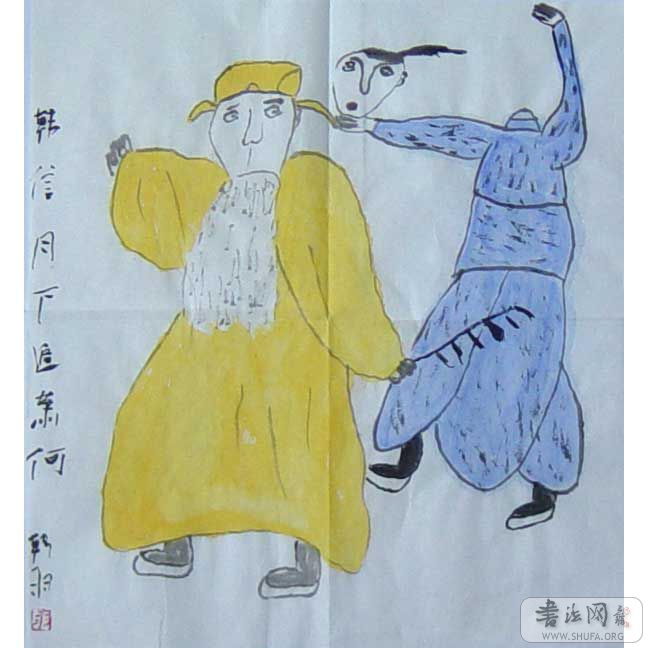 韩信月下追萧何
韩羽
書法网
WWW.SHUFA.ORG